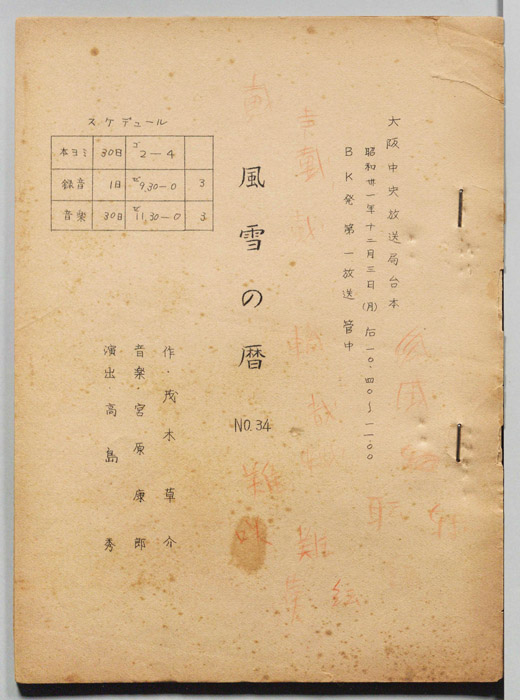 大阪中央放送局台本
昭和卅一年十二月三日(月)后一〇.四〇〜一一.〇〇
BK発第一放送 管中
風雪の暦
NO.34
スケデュール
本ヨミ 30日 ゴ2—4
録音 1日 ゼ9.30—0 3
音楽 30日 ゼ11.30—0 3
作・茂木草介
音楽 宮原康郎
演出 高島 秀